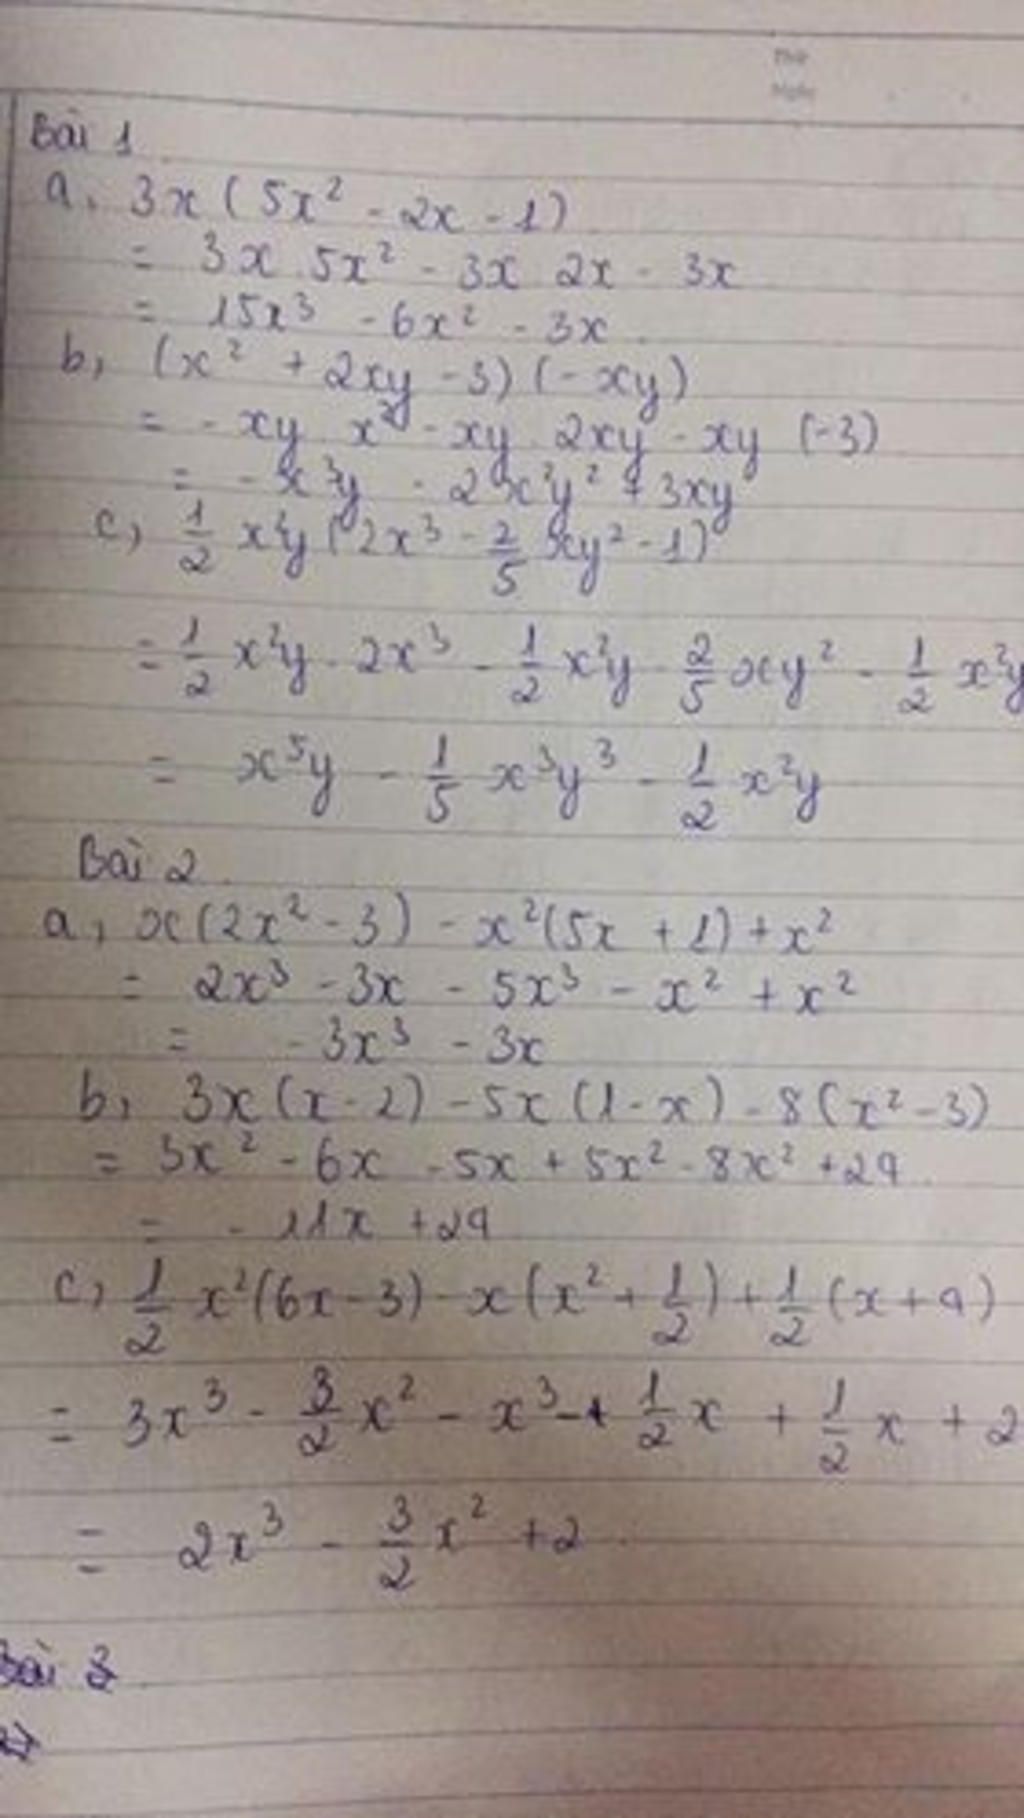 Thứ
Ngày
Bài 1
a, 3x(5x² - 2x - 1)
= 3x 5x² - 3x 2x - 3x
= 15x³ - 6x² - 3x
b, (x² + 2xy - 3)(-xy)
= - xy x² - xy 2xy - xy (-3)
= - x³y - 2x²y² + 3xy
c, 1/2 x²y (2x³ - 2/5 xy² - 1)
= 1/2 x²y . 2x³ - 1/2 x²y . 2/5 xy² - 1/2 x²y
= x⁵y - 1/5 x³y³ - 1/2 x²y
Bài 2
a, x(2x² - 3) - x²(5x + 1) + x²
= 2x³ - 3x - 5x³ - x² + x²
= - 3x³ - 3x
b, 3x(x - 2) - 5x(1 - x) - 8(x² - 3)
= 3x² - 6x - 5x + 5x² - 8x² + 24
= - 11x + 24
c, 1/2 x²(6x - 3) - x(x² + 1/2) + 1/2 (x + 4)
= 3x³ - 3/2 x² - x³ - 1/2 x + 1/2 x + 2
= 2x³ - 3/2 x² + 2
Bài 3